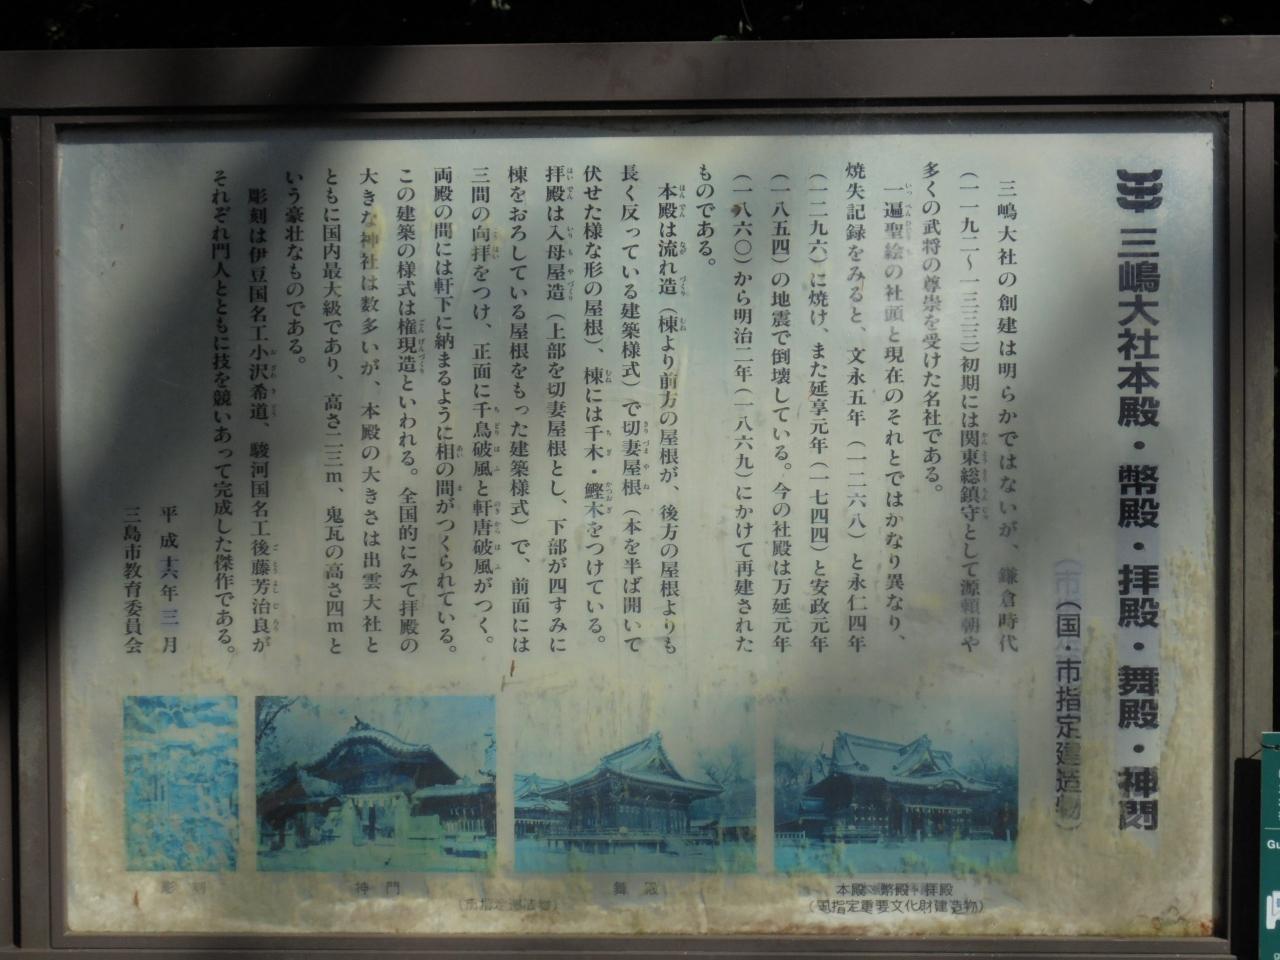 三嶋大社本殿・幣殿・拝殿・舞殿・神門
(国・市指定建造物)
三嶋大社の創建は明らかではないが、鎌倉時代
(一一九二〜一三三三)初期には関東総鎮守として源頼朝や
多くの武将の尊崇を受けた名社である。
一遍聖絵の社頭と現在のそれとではかなり異なり、
焼失記録をみると、文永五年(一二六八)と永仁四年
(一二九六)に焼け、また延享元年(一七四四)と安政元年
(一八五四)の地震で倒壊している。今の社殿は万延元年
(一八六〇)から明治二年(一八六九)にかけて再建された
ものである。
本殿は流れ造(棟より前方の屋根が、後方の屋根よりも
長く反っている建築様式)で切妻屋根(本を半ば開いて
伏せた様な形の屋根)、棟には千木・鰹木をつけている。
拝殿は入母屋造(上部を切妻屋根とし、下部が四すみに
棟をおろしている屋根をもった建築様式)で、前面には
三間の向拝をつけ、正面に千鳥破風と軒唐破風がつく。
両殿の間には軒下に納まるように相の間がつくられている。
この建築の様式は権現造といわれる。全国的にみて拝殿の
大きな神社は数多いが、本殿の大きさは出雲大社と
ともに国内最大級であり、高さ二三m、鬼瓦の高さ四mと
いう豪壮なものである。
彫刻は伊豆国名工小沢希道、駿河国名工後藤芳治良が
それぞれ門人とともに技を競いあって完成した傑作である。
平成十六年三月
三島市教育委員会
本殿・幣殿・拝殿
(国指定重要文化財建造物)
舞殿
神門
(市指定建造物)
彫刻